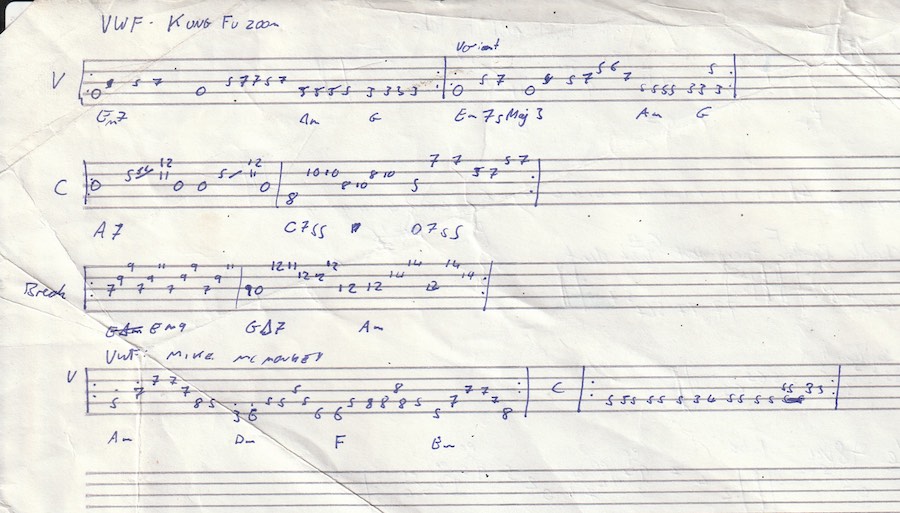 VWF - KUNG FU ZOOM
Variant
V 0 5 5 7 0 5 7 7 5 7 5 5 5 5 3 3 3 3 0 5 7 0 5 7 5 6 7 5 5 5 5 3 3 3 5
Em7 Am G Em 7 5 Maj 3 Am G
C 0 5 12 11 0 0 5 12 11 0 8 10 10 8 10 8 10 5 7 7 5 7 5 7
A7 C7 D7
Break 7 9 9 7 9 11 7 9 9 7 9 11 9 10 12 11 12 12 12 12 12 14 14 12 14 14
Em9 GΔ7 Am
VWF: MIKE
V 5 7 7 7 7 8 5 3 6 5 5 5 5 6 6 5 8 8 8 8 5 5 7 7 7 7 8 C 5 5 5 5 5 5 3 4 5 5 5 5 5 5 3 3
Am Dm F Em